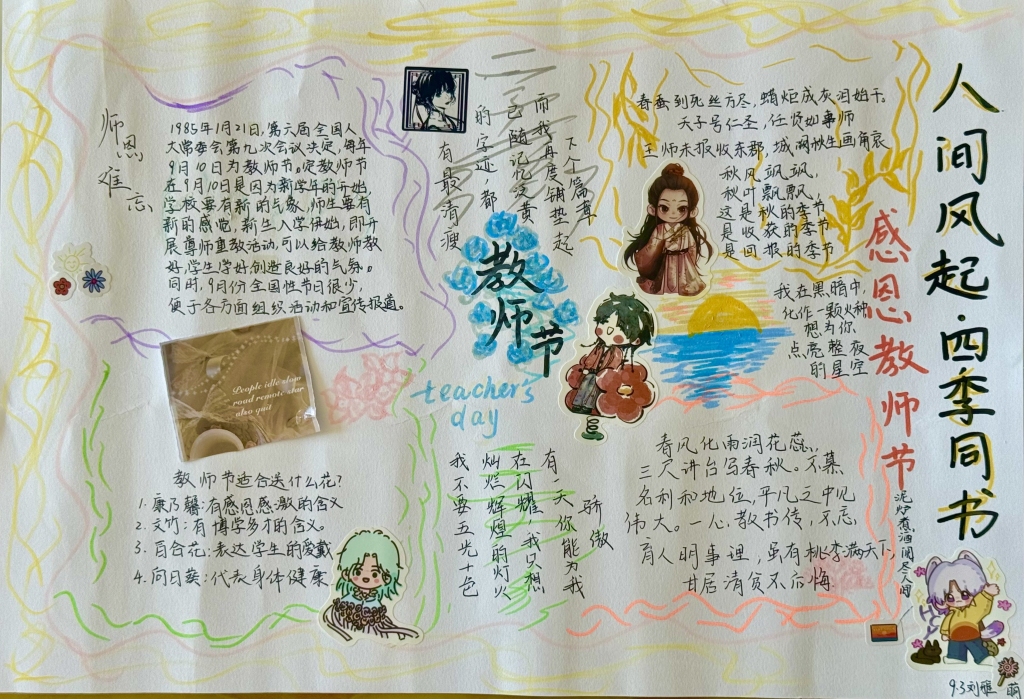 师恩难忘
1985年1月21日,第六届全国人
大常委会第九次会议决定,每年
9月10日为教师节。定教师节
在9月10日是因为新学年的开始,
学校要有新的气象,师生要有
新的感觉,新生入学伊始,即开
展尊师重教活动,可以给教师教
好,学生学好创造良好的气氛。
同时,9月份全国性节日很少,
便于各方面组织活动和宣传报道。
People idle slow
road remote star
also quit
教师节适合送什么花?
1.康乃馨:有感恩感激的含义
2.文竹:有博学多才的含义。
3.百合花:表达学生的爱戴
4.向日葵:代表身体健康
下个篇章
而我再度铺垫起
已随记忆泛黄
的字迹,都
有最清澈
教师节
teacher's
day
有一天你能为我
骄傲
在闪耀 我只想
灿烂辉煌的灯火
我不要五光十色
春蚕到死丝方尽,蜡炬成灰泪始干。
天子号仁圣,任贤如事师
王师未报收东郡,城阙秋生画角哀
秋风飒飒,
秋叶飘飘,
这是秋的季节
是收获的季节
是回报的季节
我在黑暗中,
化作一颗火种
想为你
点亮整夜
的星空
春风化雨润花蕊,
三尺讲台写春秋。不慕
名利和地位,平凡之中见
伟大。一心教书传,不忘
育人明事理,虽有桃李满天下,
甘居清贫不后悔
感恩教师节
人间风起·四季同书
泥炉煮酒闻尽人间
9.3刘雅萌